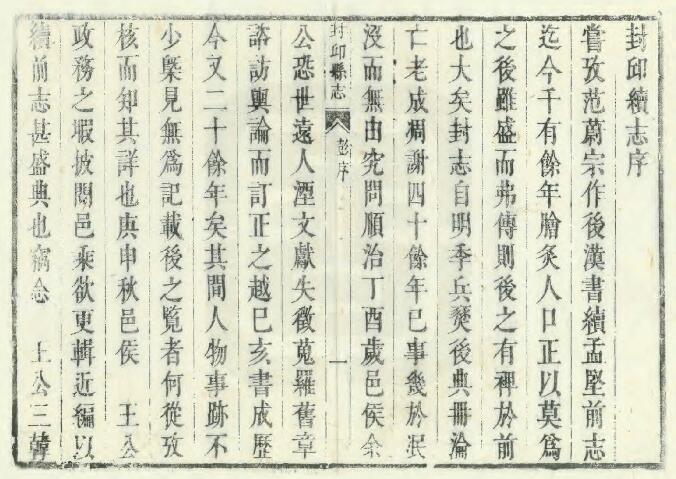 封邱續志序
嘗攷范蔚宗作後漢書續孟堅前志
迄今千有餘年膾炙人口正以莫爲
之後雖盛而弗傳則後之有裨於前
也大矣封志自明季兵燹後典冊淪
亡老成凋謝四十餘年已事幾於泯
沒而無由究問順治丁酉歲邑侯余
封邱縣志 彭序 一
公恐世遠人湮文獻失徵蒐羅舊章
諮訪輿論而訂正之越己亥書成歷
今又二十餘年矣其間人物事跡不
少槩見無爲記載後之覽者何從攷
核而知其詳也庚申秋邑侯 王公
政務之暇披閱邑乘欲更輯近編以
續前志甚盛典也竊念 王公三韓